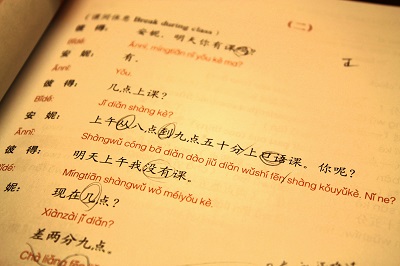 (课间休息 Break during class) (二)
彼得: 安妮, 明天你有课吗?
Bǐdé: Ānní, míngtiān nǐ yǒu kè ma?
安妮: 有。
Ānní: Yǒu.
彼得: 几点上课?
Bǐdé: Jǐ diǎn shàng kè?
安妮: 上午从八点到九点五十分上口语课。你呢?
Ānní: Shàngwǔ cóng bā diǎn dào jiǔ diǎn wǔshí fēn shàng kǒuyǔkè. Nǐ ne?
彼得: 明天上午我没有课。
Bǐdé: Míngtiān shàngwǔ wǒ méiyǒu kè.
妮: 现在几点?
Xiànzài jǐ diǎn?
差两分九点。
Chà liǎng fēn